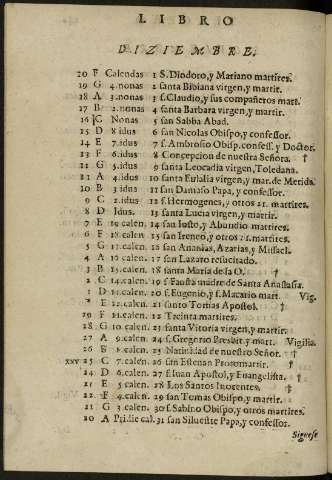 LIBRO
DIZIEMBRE.
20 F Calendas 1 S. Diodoro, y Mariano martires.
19 G 4.nonas 2 santa Bibiana virgen, y martir.
18 A 3.nonas 3 s. Claudio, y sus compañeros mart.
17 B 2.nonas 4 santa Barbara virgen, y martir.
16 C Nonas 5 san Sabba Abad.
15 D 8.idus 6 san Nicolas Obispo, y confessor.
14 E 7.idus 7 s. Ambrosio Obisp. confess. y Doctor.
13 F 6.idus 8 Concepcion de nuestra Señora. †
12 G 5.idus 9 santa Leocadia virgen, Toledana.
11 A 4.idus 10 santa Eulalia virgen, y mar. de Merida.
10 B 3.idus 11 san Damaso Papa, y confessor.
9 C 2.idus 12 s. Hermogenes, y otros 21. martires.
8 D Idus. 13 santa Lucia virgen, y martir.
7 E 19.calen. 14 san Iusto, y Abundio martires.
6 F 18.calen. 15 san Ireneo, y otros martires.
5 G 17.calen. 16 san Ananias, Azarias, y Missael.
4 A 16.calen. 17 san Lazaro resucitado.
3 B 15.calen. 18 santa Maria de la O. †
2 C 14.calen. 19 s. Fausta madre de Santa Anastasia.
1 D 13.calen. 20 s. Eugenio, y s. Macario mart. Vig.
* E 12.calen. 21 santo Tomas Apostol. †
29 F 11.calen. 22 Treinta martires.
28 G 10.calen. 23 santa Vitoria virgen, y martir.
27 A 9.calen. 24 s. Gregorio Presbit. y mart. Vigilia.
26 B 8.calen. 25 Natiuidad de nuestro Señor. †
xxv 25 C 7.calen. 26 san Esteuan Protomartir. †
24 D 6.calen. 27 s. Iuan Apostol, y Euangelista. †
23 E 5.calen 28 Los Santos Inocentes. †
22 F 4.calen. 29 san Tomas Obispo, y martir.
21 G 3.calen. 30 s. Sabino Obispo, y otros martires.
20 A Pridie cal. 31 san Siluestre Papa, y confessor.
Siguese